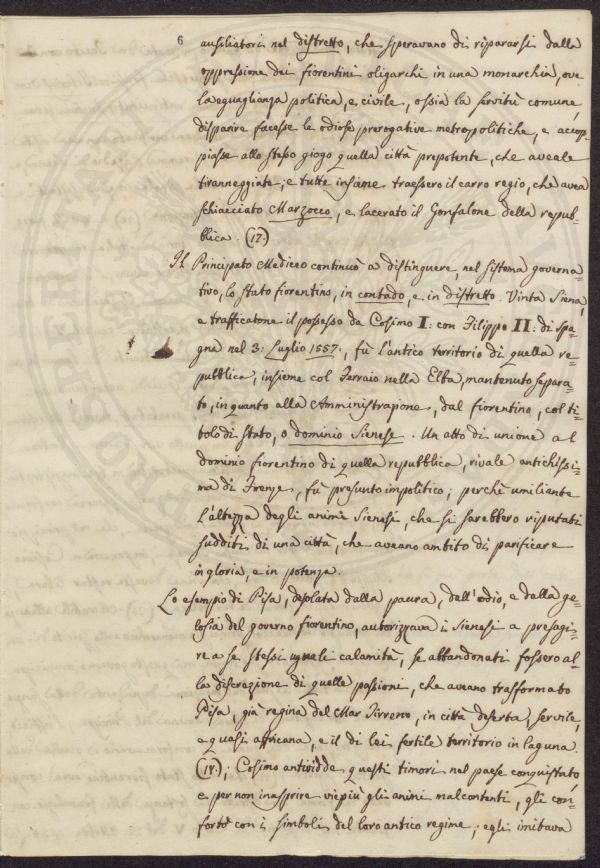 6
ausiliatori nel distretto, che speravano di ripararsi dalla
oppressione dei fiorentini oligarchi in una monarchia, ove
la eguaglianza politica, e civile, ossia la servitù comune,
disparire facesse le odiose prerogative metropolitiche, e accop=
piasse allo stesso giogo quella città prepotente, che aveale
tiranneggiate; e tutte insieme traessero il carro regio, che avea
schiacciato Marzocco, e lacerato il Gonfalone della repub=
blica. (17.)
Il Principato Mediceo continuò a distinguere, nel sistema governa=
tivo, lo stato fiorentino, in contado, e in distretto. Vinta Siena,
e trafficatone il possesso da Cosimo I: con Filippo II: di Spa=
gna nel 3: Luglio 1557:, fù l'antico territorio di quella re=
pubblica, insieme col Ferraio nella Elba, mantenuto separa=
to, in quanto alla Amministrazione, dal fiorentino, col ti=
tolo di stato, o dominio Sienese. Un atto di unione al
dominio fiorentino di quella repubblica, rivale antichissi=
ma di Firenze, fù presunto impolitico; perchè umiliante
l'altezza degli animi Sienesi, che si sarebbero riputati
sudditi di una città, che aveano ambito di parificare
in gloria, e in potenza.
Lo esempio di Pisa, desolata dalla paura, dall'odio, e dalla ge=
losia del governo fiorentino, autorizzava i Sienesi a presagi=
re a se stessi uguali calamità, se abbandonati fossero al=
la discrezione di quelle passioni, che aveano trasformato
Pisa, già regina del Mar Tirreno, in città deserta, servile,
e quasi affricana, e il di lei fertile territorio in laguna.
Cosimo antividde questi timori nel paese conquistato,
e per non inasprire viepiù gli animi malcontenti, gli con=
fortò con i simboli del loro antico regime; egli imitava